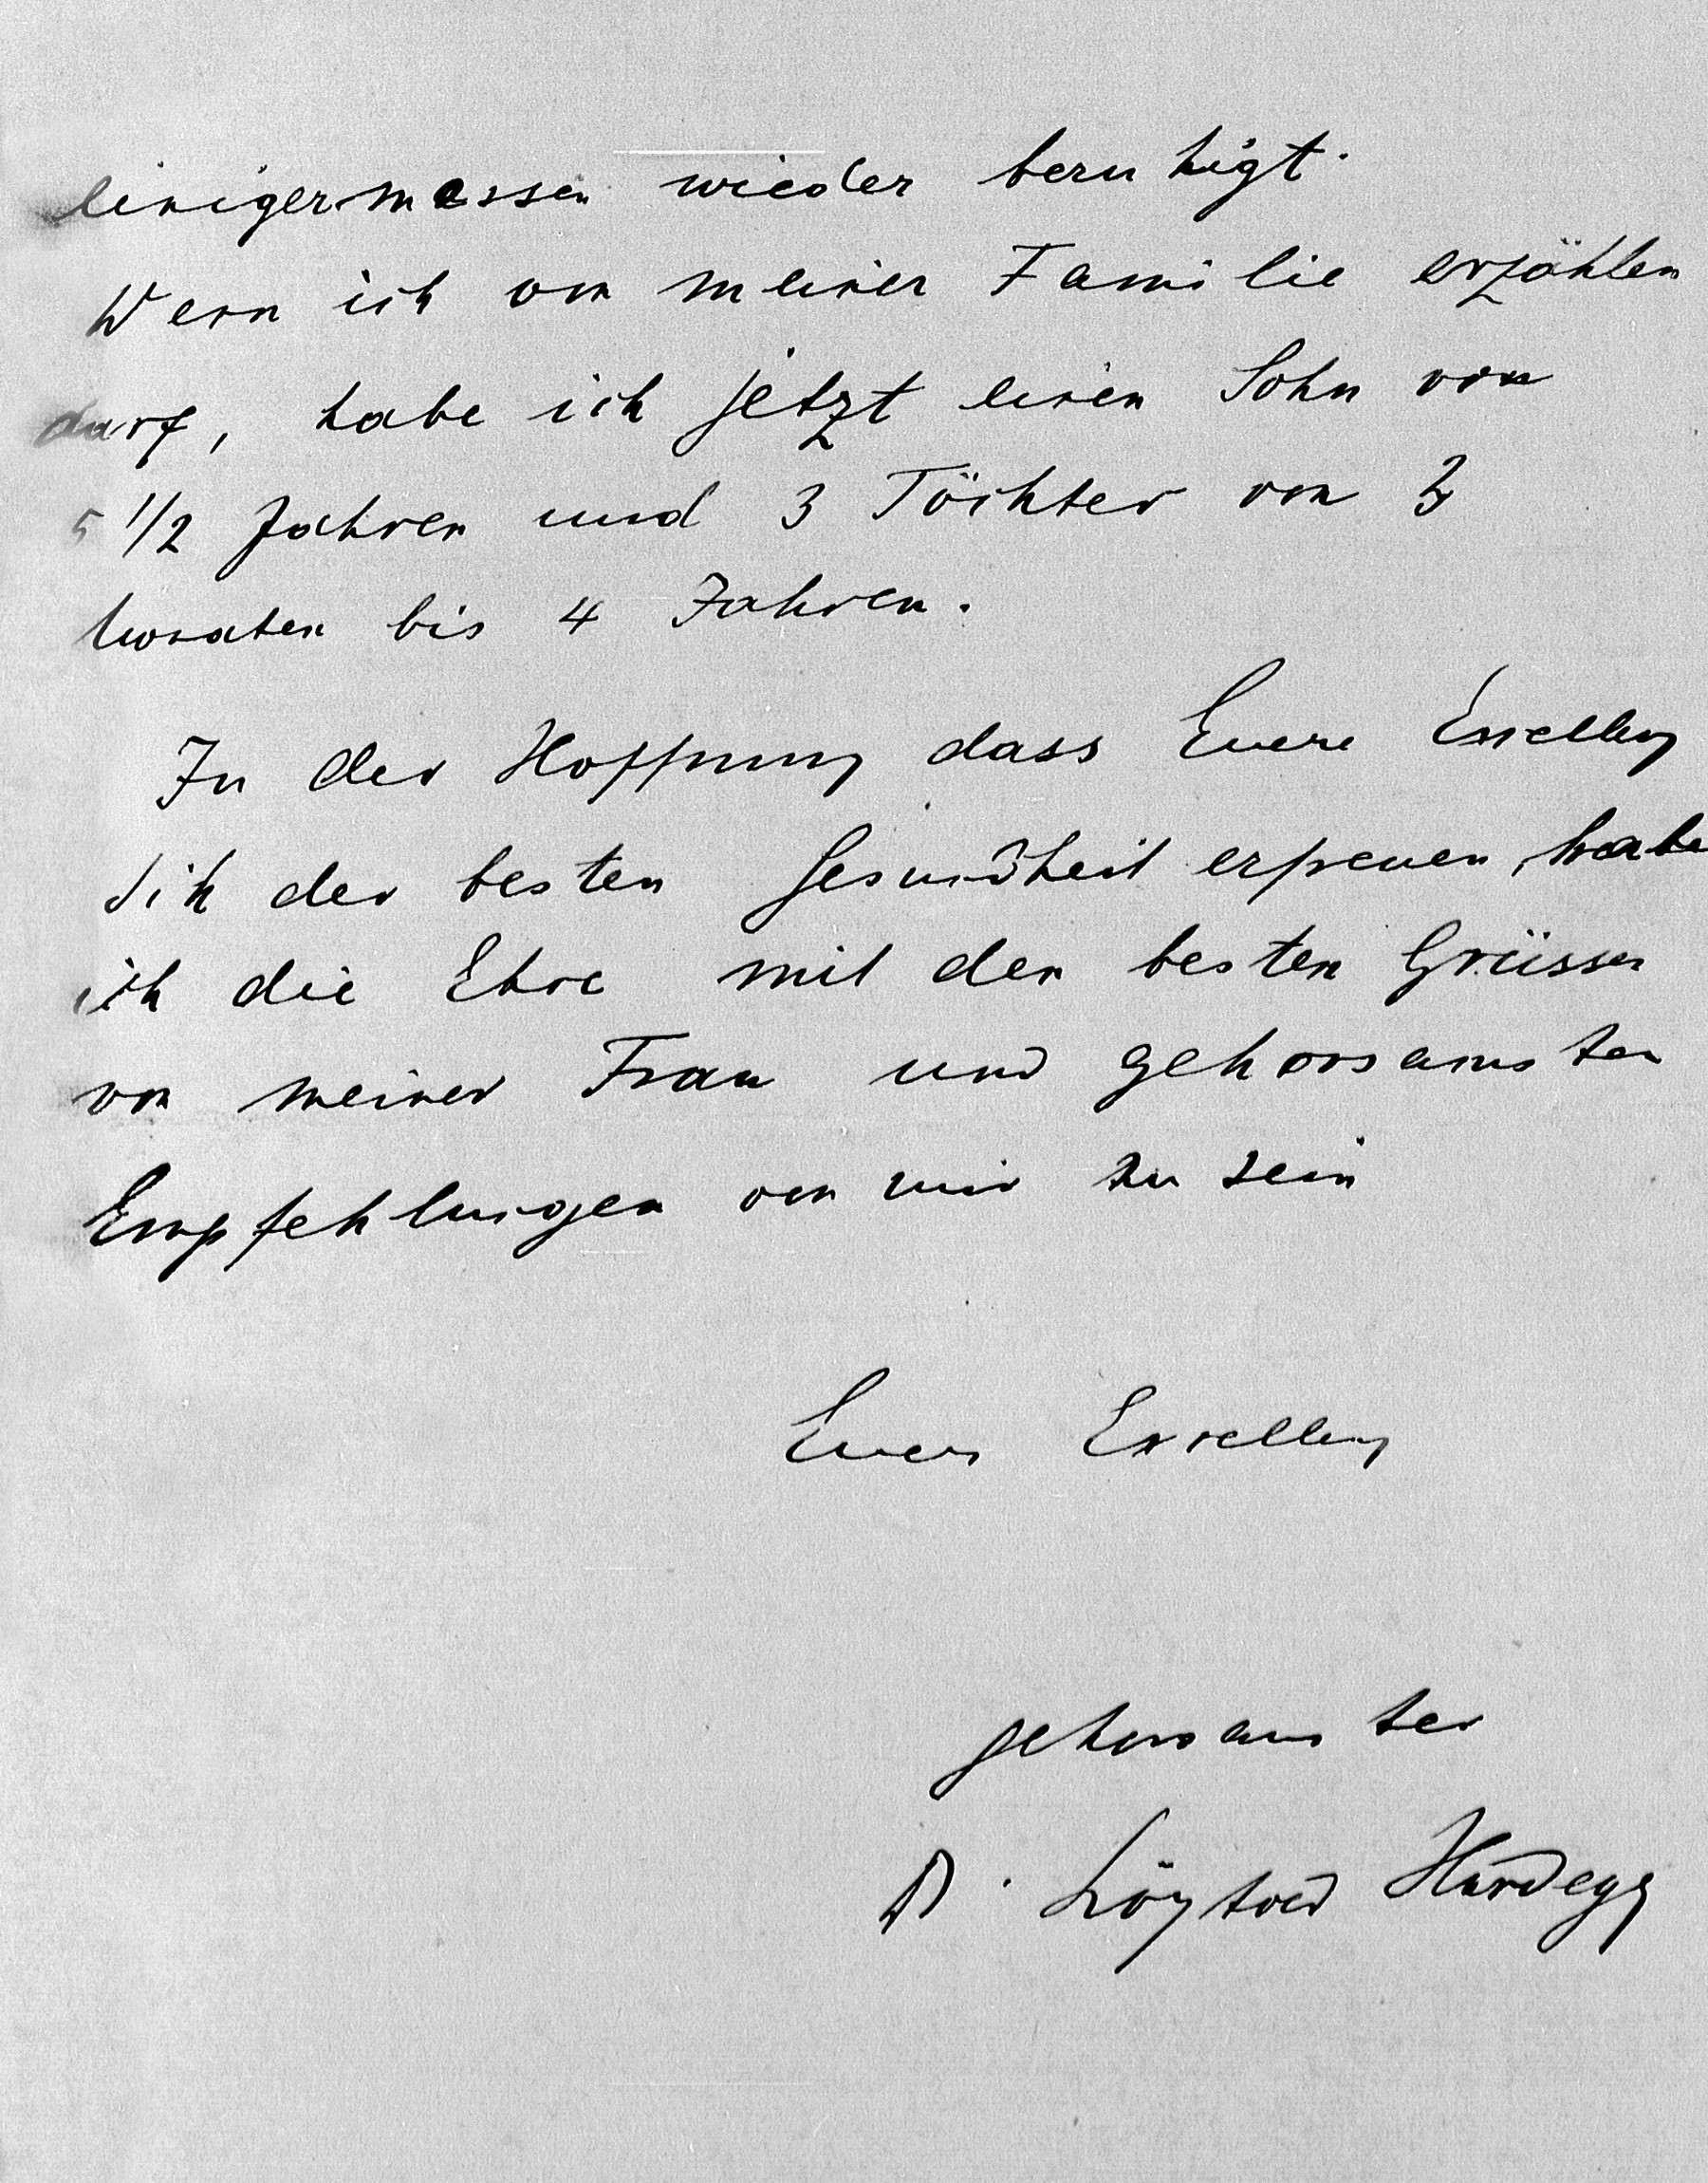 einigermassen wieder beruhigt.
Wenn ich von meiner Familie erzählen
darf, habe ich jetzt einen Sohn von
5 1/2 Jahren und 3 Töchter von 3
Monaten bis 4 Jahren.
In der Hoffnung dass Euere Excellenz
sich der besten Gesundheit erfreuen, habe
ich die Ehre mit den besten Grüssen
von meiner Frau und gehorsamsten
Empfehlungen von mir zu sein
Euer Excellenz
gehorsamster
D. Löytved Hardegg